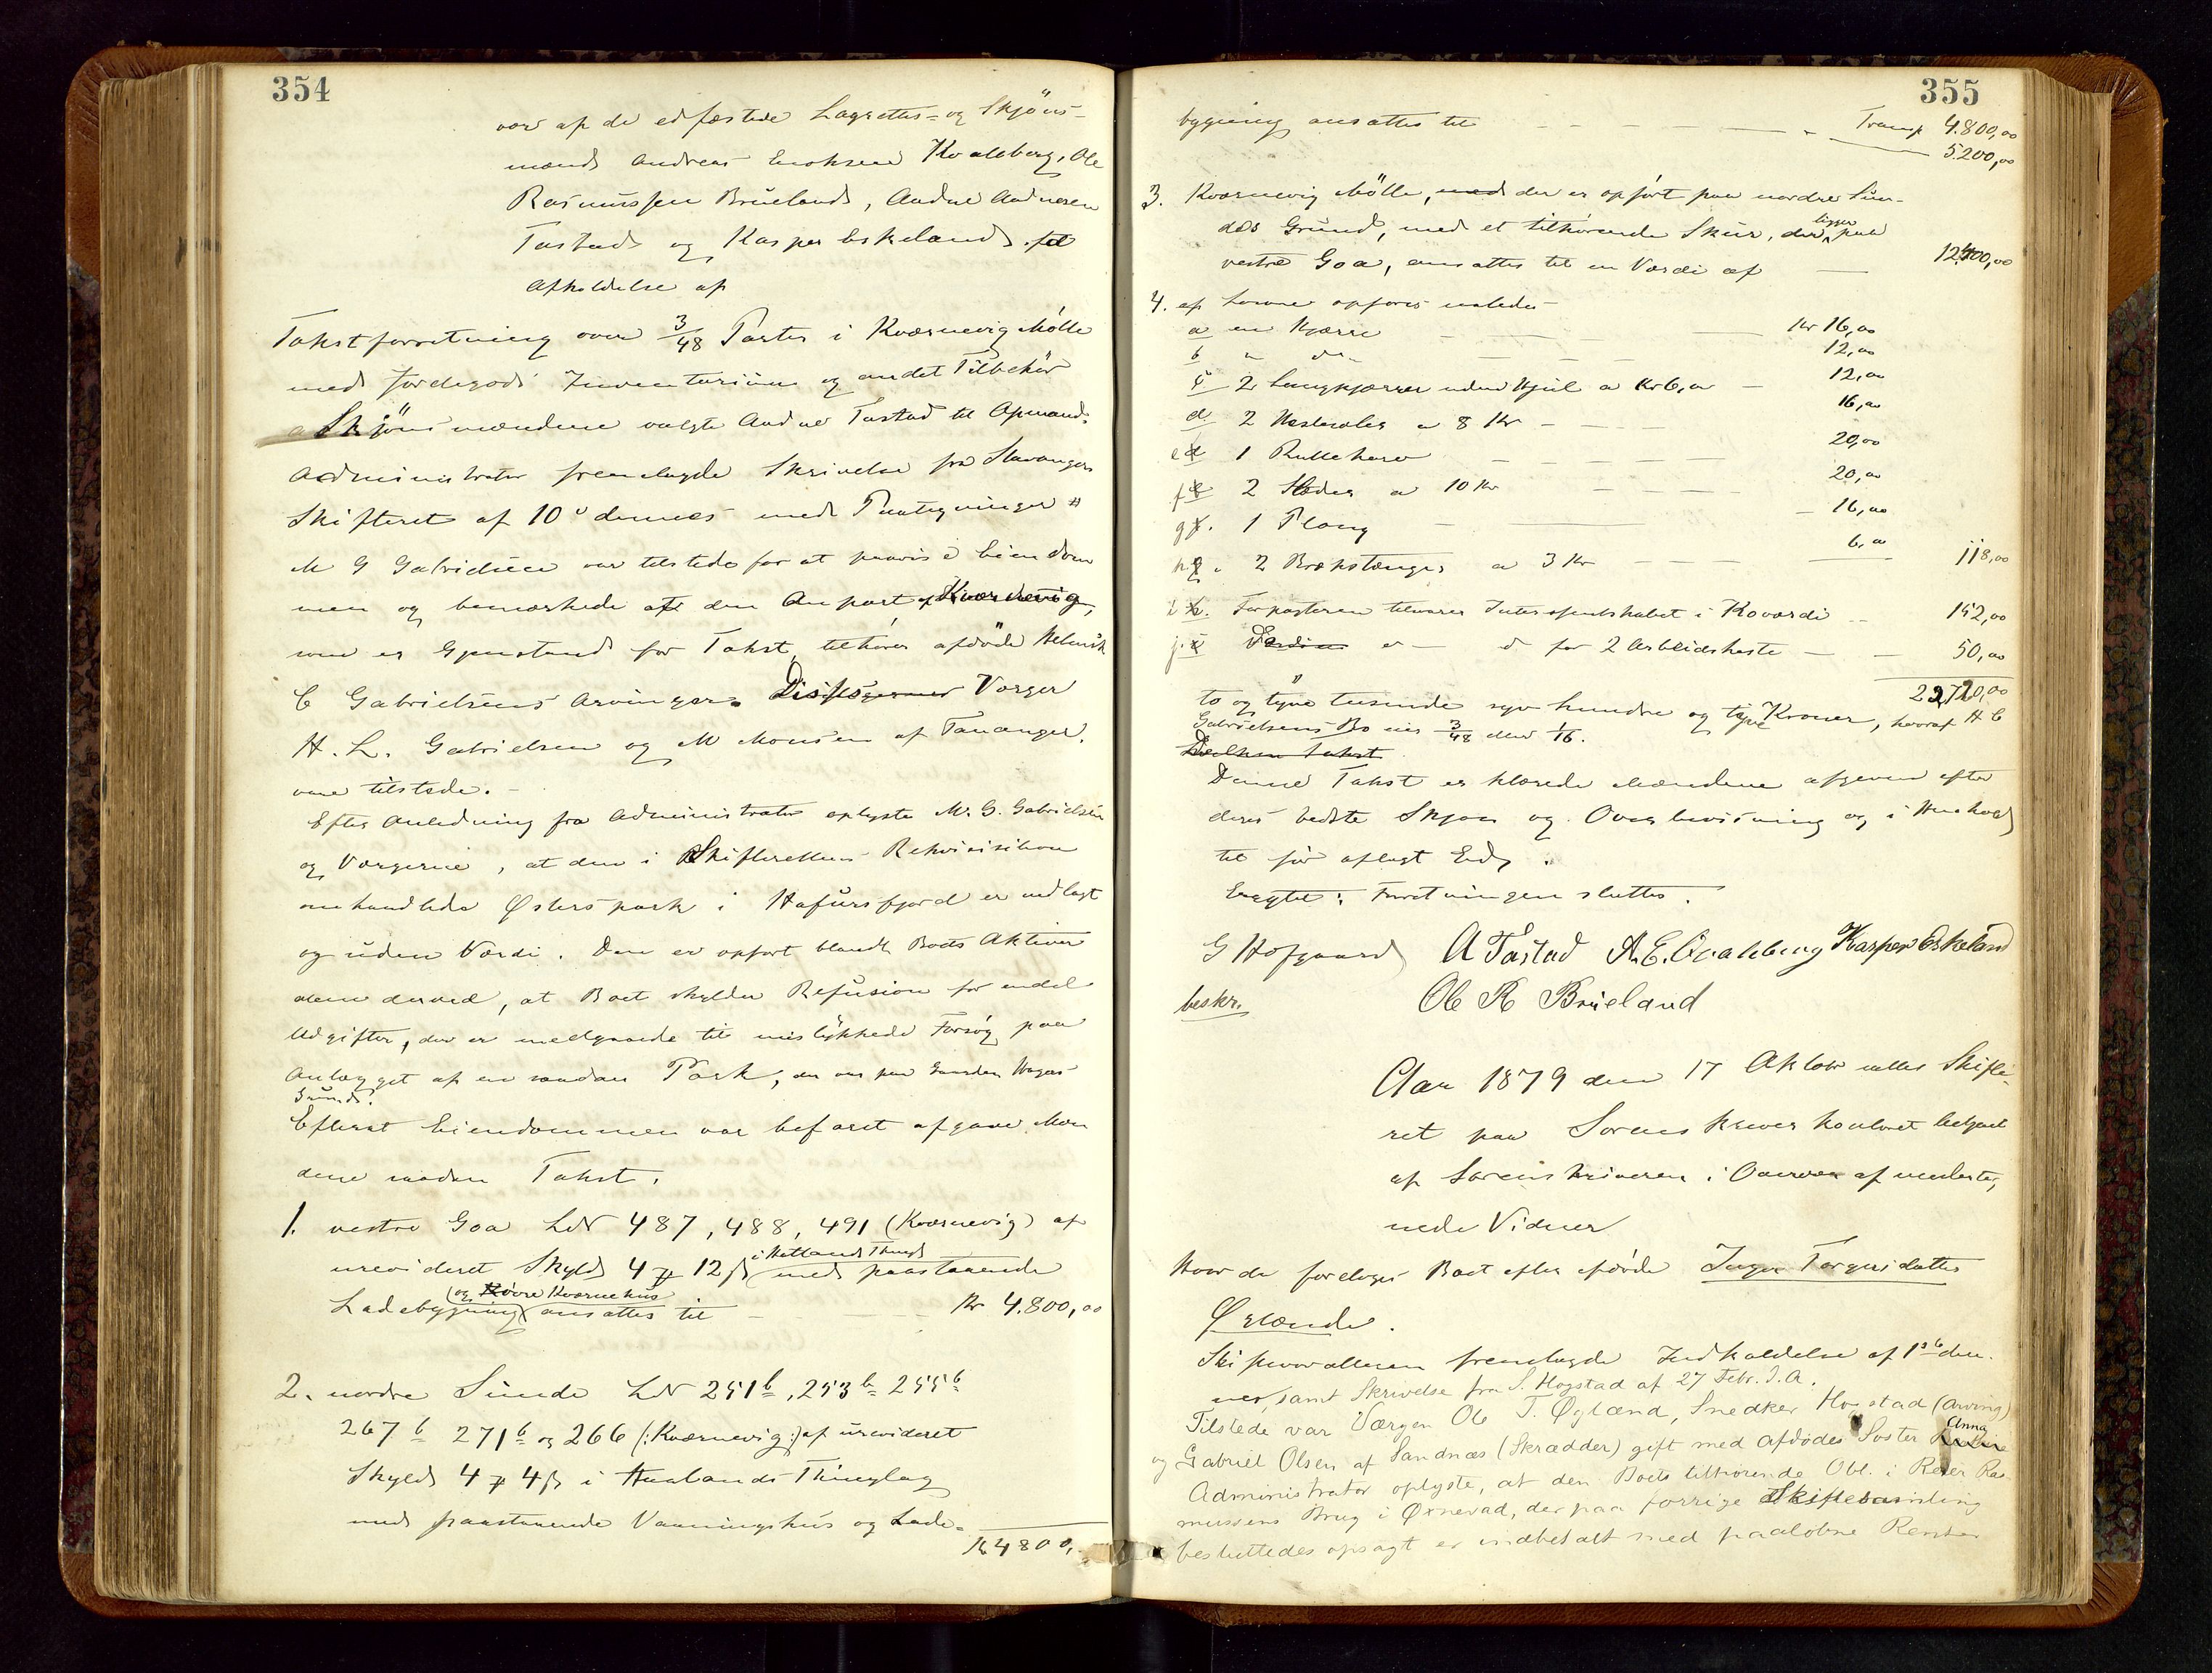 354
var af de edfæstede Lagrettes- og Skjöns-
mænd Andreas Enoksen Kvaleberg, Ole
Rasmussen Brueland, Audne Audnesen
Tastad og Kasper Eskeland til
Afholdelse af
Takstforretning over 3/48 Parter i Kværnevig Mölle
med Jordegods Inventarium og andet Tilbehör
Skjönsmændene valgte Audne Tastad til Opmand.
Administrator fremlagde Skrivelse fra Stavanger
Skifteret af 10de dennes med Paategninger
M G Gabrielsen var tilstede for at paavise Eiendom
men og bemærkede at den Anpart af Kværnevig,
som er Gjenstand for Takst, tilhörer afdöde Helmik
C Gabrielsens Arvinger. Værger
H. L. Gabrielsen og M Monsen af Tananger.
vare tilstede.
Efter Anledning fra Administrator oplyste M. G. Gabrielsen
og Værgerne, at den i Skifterettens Rekvisition
omhandlede Østerspark i Hafursfjord er nedlagt
og uden Værdi. Den er opfört blandt Boets Aktiver
alene derved, at Boet skylder Refusion for endel
Udgifter, der er medgaaede til mislykkede Forsög paa
Anlægget af en saadan Park, der var paa Gaarden Hagas
Grund.
Efterat Eiendommen var befaret afgave Mæn
dene saadan Takst.
1. vestre Goa LN 487, 488, 491 (Kværnevig) af
i Hetlands Thingl
urevideret Skyld 4 # 12 ß med paastaaende
(og Kværnehus
Ladebygning ansattes til Kr 4.800,00
2. nordre Sunde LN 251b, 253b 255b
267b 271b og 266 (:Kværnevig:) af urevideret
Skyld 4 # 4 ß i Haalands Thinglag
med paastaaende Vaaningshus og Lade-
Kr 4800,
355
bygning ansattes til Transp 4.800,00
5.200,00
3. Kværnevig Mölle, med der er opfört paa nordre Sun-
ligger
des Grund, med et tilhörende Skur, der paa
vestre Goa, ansattes til en Værdi af 12400,00
4. af Lösöre opföres saaledes
a en Kjærre Kr 16,00
b " do 12,00
c 2 Langkjærrer uden Hjul a Kr 6,00 12,00
d 2 a 8 Kr 16,00
e 1 Rulleharv 20,00
f 2 Slæder a 10 Kr 20,00
g. 1 Ploug 16,00
h. 2 Brækstænger a 3 Kr 6,00 118,00
i. Forpagteren tilsvarer Interessentskabet i Koværdi 152,00
j. d for 2 Arbeidsheste 50,00
22720,00
to og tyve tusinde syv hundre og tyve Kroner, hvoraf H C
Gabrielsens Bo eier 3/48 eller 1/16.
Takst
Denne Takst er klarede Mændene afgiven efter
deres bedste Skjön og Overbevisning og i Henhold
til för aflagt Ed.
Forretningen sluttes.
G Hofgaard A Tastad A. E. Qvaleberg Kasper Eskeland
beskr. Ole R Brueland
Aar 1879 den 17 Oktobr sattes Skifte-
ret paa Sorenskriverkontoret betjent
af Sorenskriveren i Overvær af underteg
nede Vidner
Hvor da foretoges Boet efter afdöde Inger Torgersdatter
Øglænd.
Skifteforvalteren fremlagde Indkaldelse af 1ste den-
nes, samt Skrivelse fra S. Hogstad af 27 Febr. I. A.
Tilstede var Værgen Ole T. Øglænd, Snedker Hogstad (Arving)
Anna
og Gabriel Olsen af Sandnæs (Skrædder) gift med Afdödes Söster
Administrator oplyste, at den Boets tilhörende Obl. i Reier Ras
mussens Brug i Øxnevad, der paa forrige Skiftesamling
besluttedes opsagt er indbetalt med paalöbne Renter